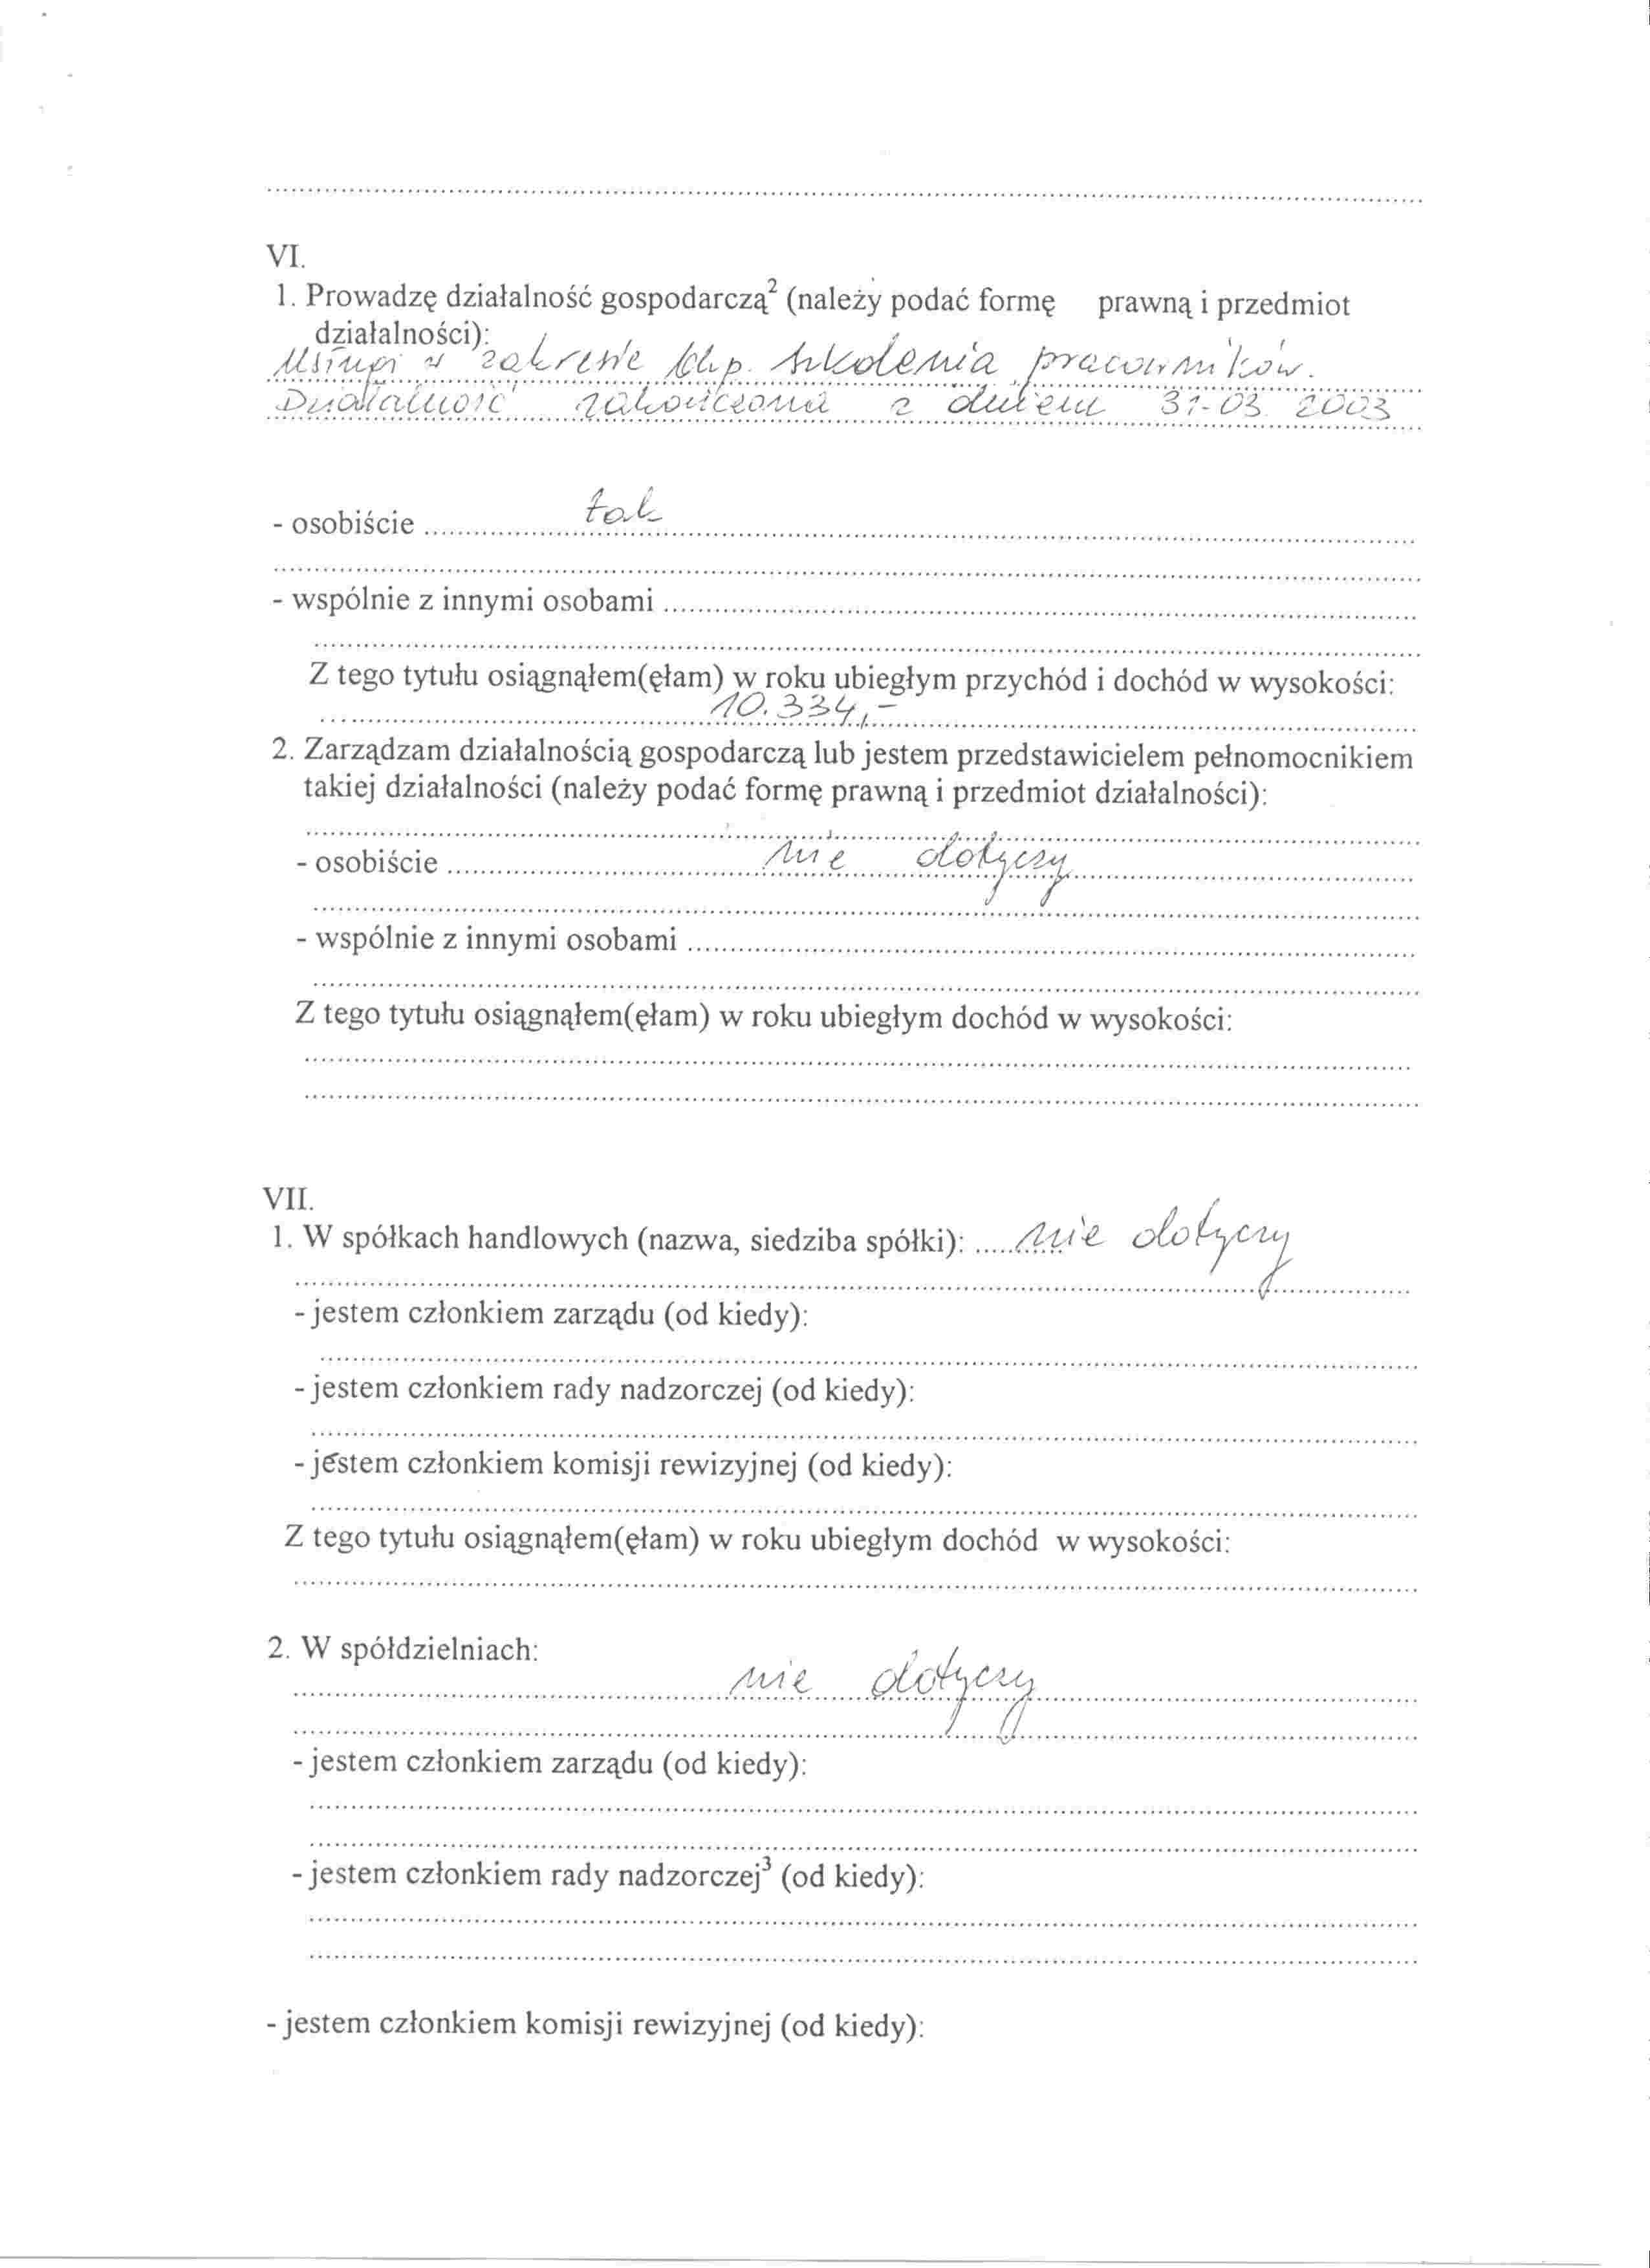 VI.
1. Prowadzę działalność gospodarczą² (należy podać formę prawną i przedmiot
działalności):
Usługi w zakresie bhp. szkolenia pracowników.
Działalność zakończona z dniem 31-03 2003
- osobiście ........ tak ........
- wspólnie z innymi osobami ........
Z tego tytułu osiągnąłem(ęłam) w roku ubiegłym przychód i dochód w wysokości:
10.334,-
2. Zarządzam działalnością gospodarczą lub jestem przedstawicielem pełnomocnikiem
takiej działalności (należy podać formę prawną i przedmiot działalności):
- osobiście ........ nie dotyczy ........
- wspólnie z innymi osobami ........
Z tego tytułu osiągnąłem(ęłam) w roku ubiegłym dochód w wysokości:
VII.
1. W spółkach handlowych (nazwa, siedziba spółki): ..... nie dotyczy
- jestem członkiem zarządu (od kiedy):
- jestem członkiem rady nadzorczej (od kiedy):
- jestem członkiem komisji rewizyjnej (od kiedy):
Z tego tytułu osiągnąłem(ęłam) w roku ubiegłym dochód w wysokości:
2. W spółdzielniach:
nie dotyczy
- jestem członkiem zarządu (od kiedy):
- jestem członkiem rady nadzorczej³ (od kiedy):
- jestem członkiem komisji rewizyjnej (od kiedy):